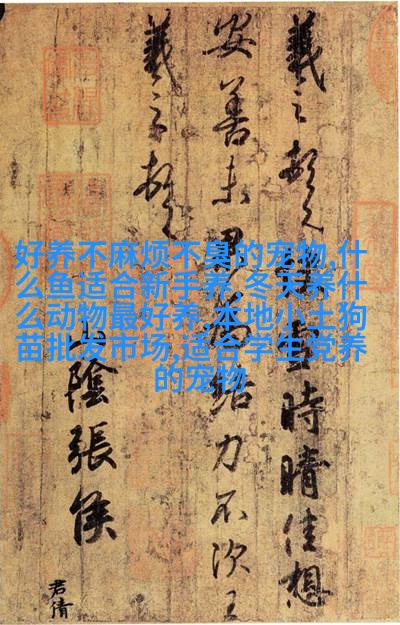 好养不麻烦不臭的宠物,什
么鱼适合新手养,冬天养什
么动物最好养,本地小土狗
苗批发市场,适合学生党养
的宠物
羲之頓首快雪時晴佳想
安善未果為結力不次王
羲之頓首
山陰張侯
君倩